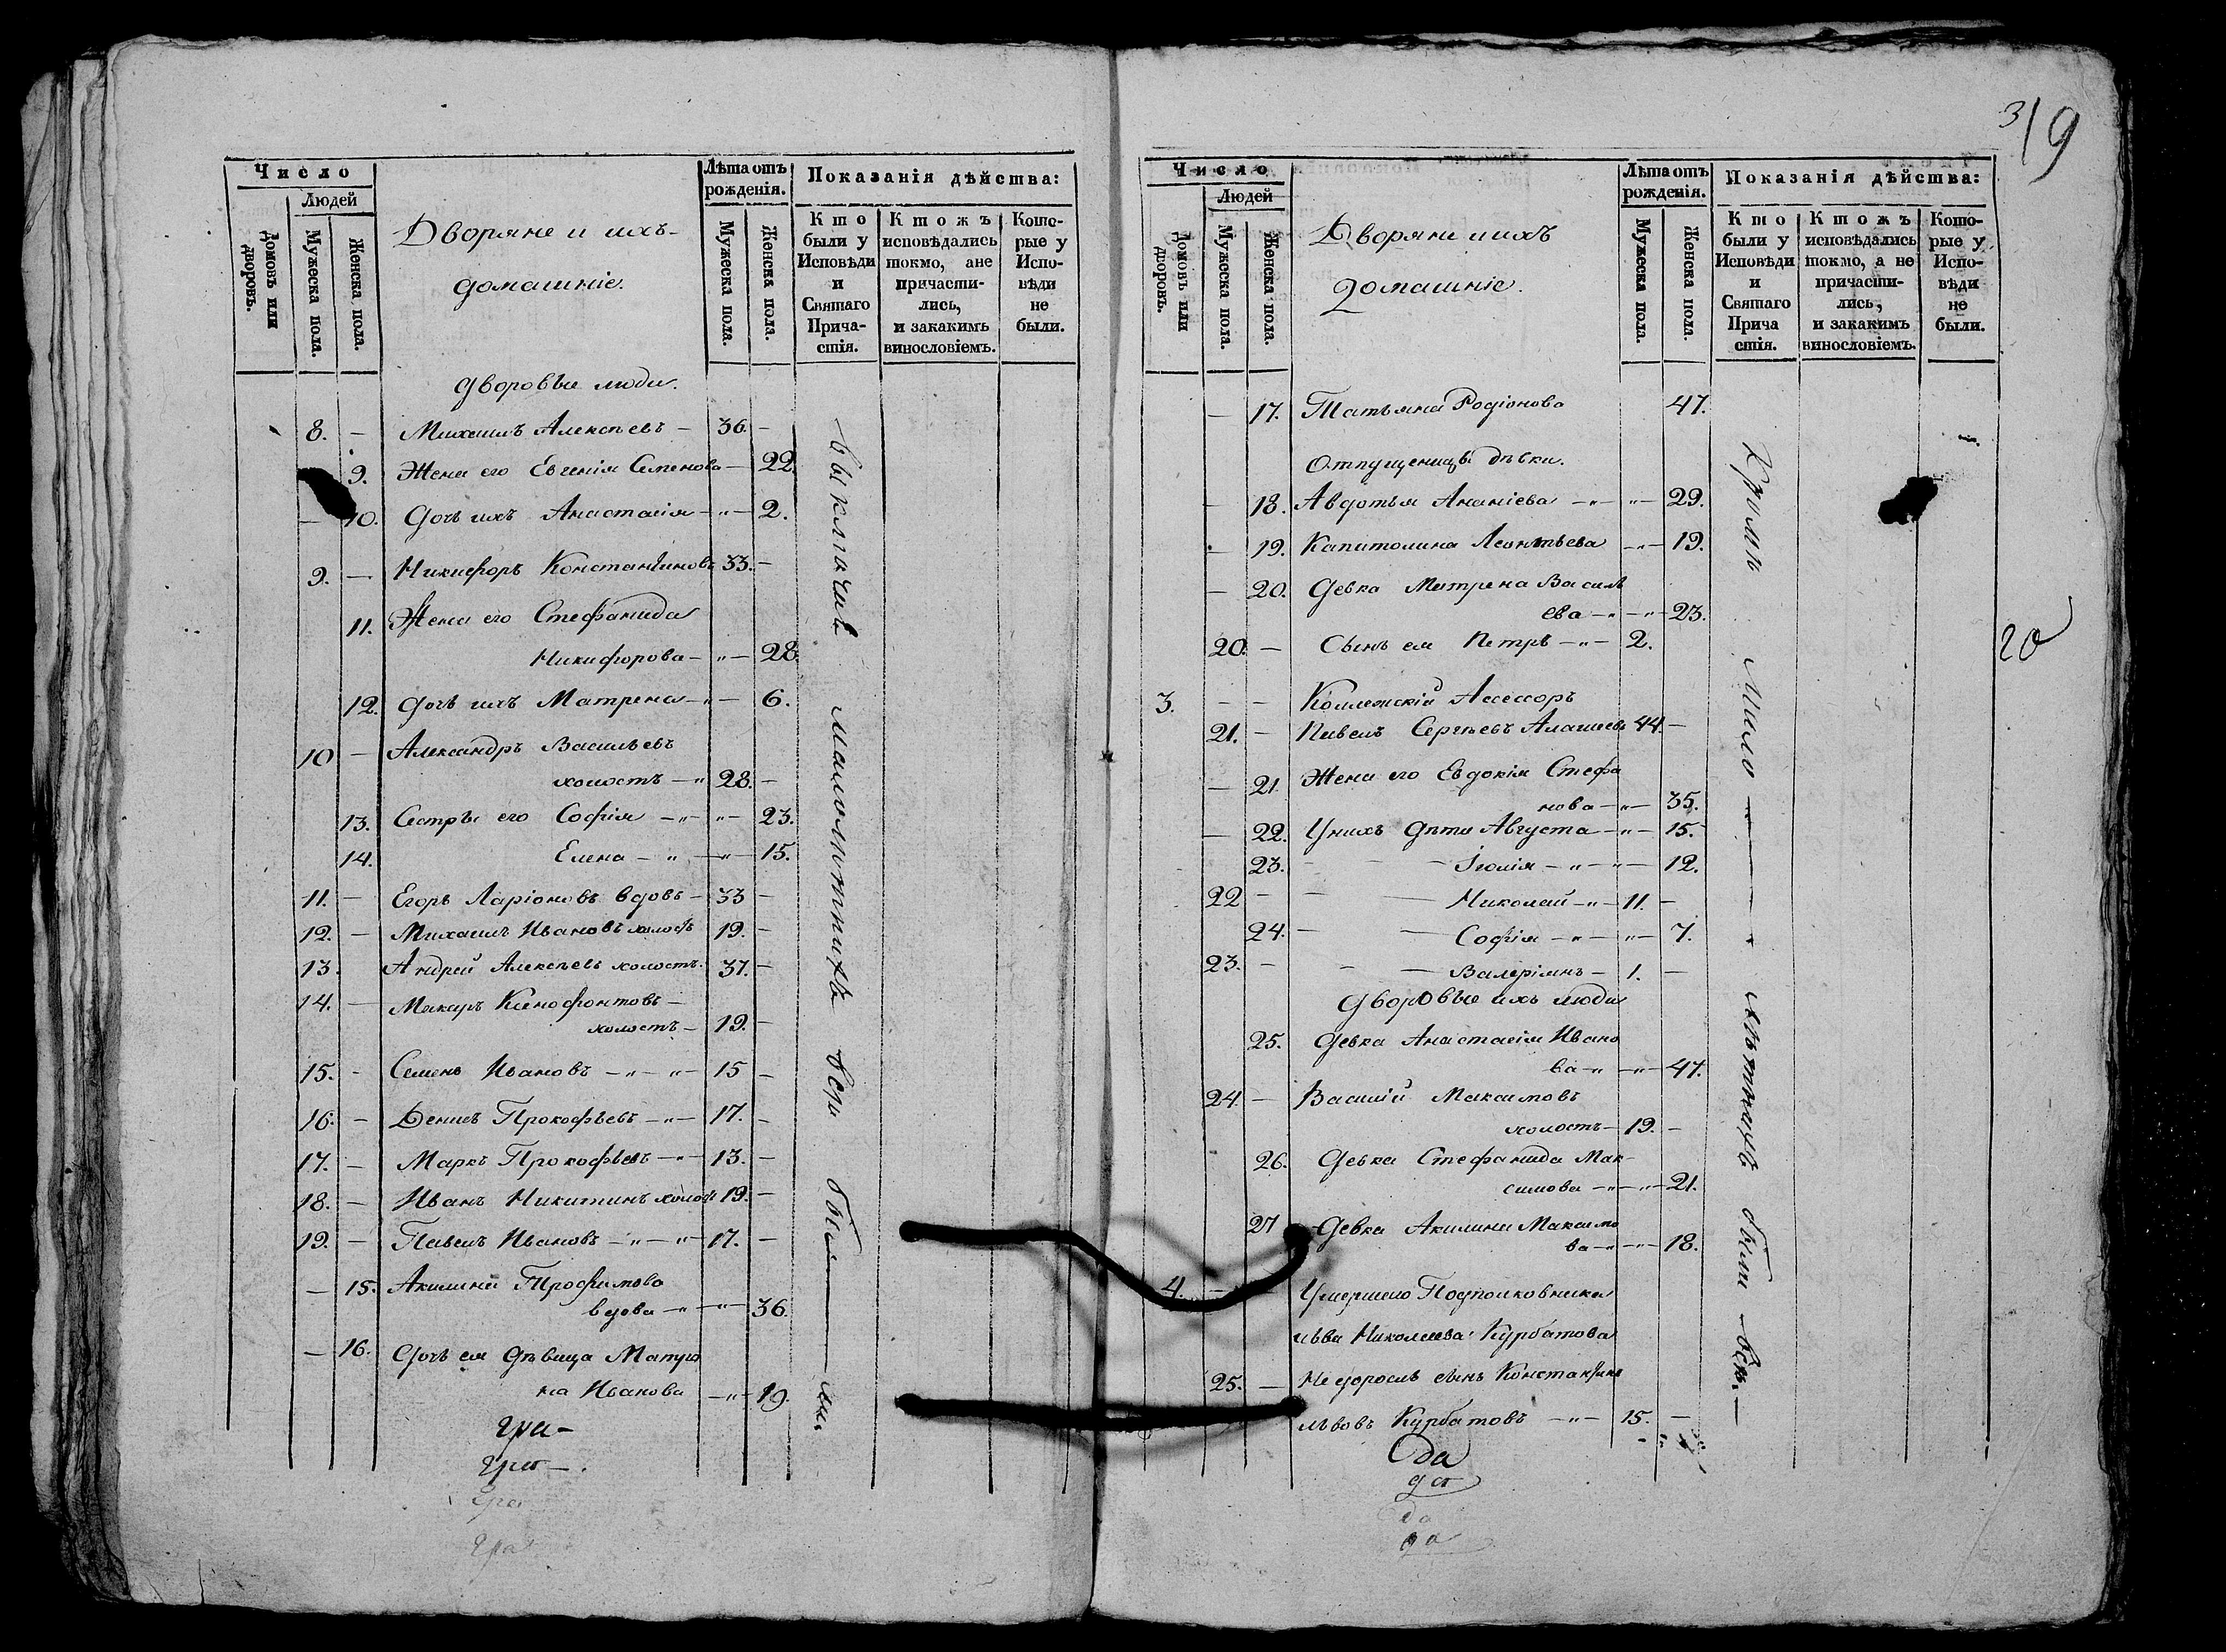 Число
Людей
домовъ или дворовъ.
Мужеска пола.
Женска пола.
Дворяне и ихъ
домашніе.
Лѣта отъ рожденія.
Мужеска пола.
Женска пола.
Показанія дѣйства:
Кто были у Исповѣди и Святаго Прича-стія.
Ктожъ исповѣдались токмо, ане причасти-лись, и закакимъ винословіемъ.
Кото-рые у Испо-вѣди не были.
дворовые люди.
8. — Михаилъ Алексѣевъ — 36. —
9. Жена его Евгенія Семенова — 22.
— 10. Дочь ихъ Анастасія — „ — 2.
9. — Никифоръ Константиновъ 33. —
11. Жена его Стефанида
Никифорова — „ — 28.
12. Дочь ихъ Матрена — „ — 6.
10 — Александръ Васильевъ
холостъ — „ 28. —
13. Сестры его Софія — „ — „ — 23.
14. Елена — „ — „ — 15.
11. — Егоръ Ларіоновъ вдовъ — 33 —
12. — Михаилъ Ивановъ холостъ 19. —
13. Андрей Алексѣевъ холостъ. 37. —
14. — Макаръ Ксенофонтовъ —
холостъ — 19. —
15. — Семенъ Ивановъ — „ — „ — 15 —
16. — Денисъ Прокофьевъ — „ — 17. —
17. — Маркъ Прокофьевъ — „ — 13. —
18. — Иванъ Никитинъ холостъ 19. —
19. — Павелъ Ивановъ — „ — „ — 17. —
— 15. Акилина Трофимова
вдова — „ — „ — 36.
— 16. Дочь ея дѣвица Матре
на Иванова — „ — 19.
гра-
гра-.
гра
гра
выключая малолѣтнихъ всѣ бы——ли.
319
Число
Людей
домовъ или дворовъ.
Мужеска пола.
Женска пола.
Дворяне и ихъ
домашніе.
Лѣта отъ рожденія.
Мужеска пола.
Женска пола.
Показанія дѣйства:
Кто были у Исповѣди и Святаго Прича стія.
Ктожъ исповѣдались токмо, а не причасти-лись, и закакимъ винословіемъ.
Кото-рые у Испо-вѣди не были.
— 17. Татьяна Родіонова 47.
Отпущеницы дѣвки.
— 18. Авдотья Ананіева — „ — „ — 29.
— 19. Капитолина Леонтьева — „ — 19.
— 20. Девка Матрена Василь
ева — „ — „ — 23.
20. — Сынъ ея Петръ — „ — 2.
3. — — Коллежскій Асессоръ
21. — Павелъ Сергѣевъ Алашеевъ 44. —
— 21 Жена его Евдокія Стефа
нова — „ — 35.
— 22. Унихъ дѣти Августа — „ — 15.
23. — — — Іюлія — „ — „ — 12.
22 — — — Николай — „ — 11. —
24. — — Софія — „ — „ — 7.
23. — — — Валеріянъ — 1. —
дворовые ихъ люди
25. Девка Анастасія Ивано
ва — „ — „ — 47.
24. — Василій Максимовъ
холостъ — 19. —
26. Девка Стефанида Мак-
симова — „ — „ — 21.
27 Девка Акилина Максимо
ва — „ — „ — 18.
4. — Умершаго Подполковника
Льва Николаева Курбатова
25. — Недоросль сынъ Константинъ
Львовъ Курбатовъ — „ — 15. —
да
да
да
да
Кромѣ мало———лѣтнихъ были всѣ.—
20